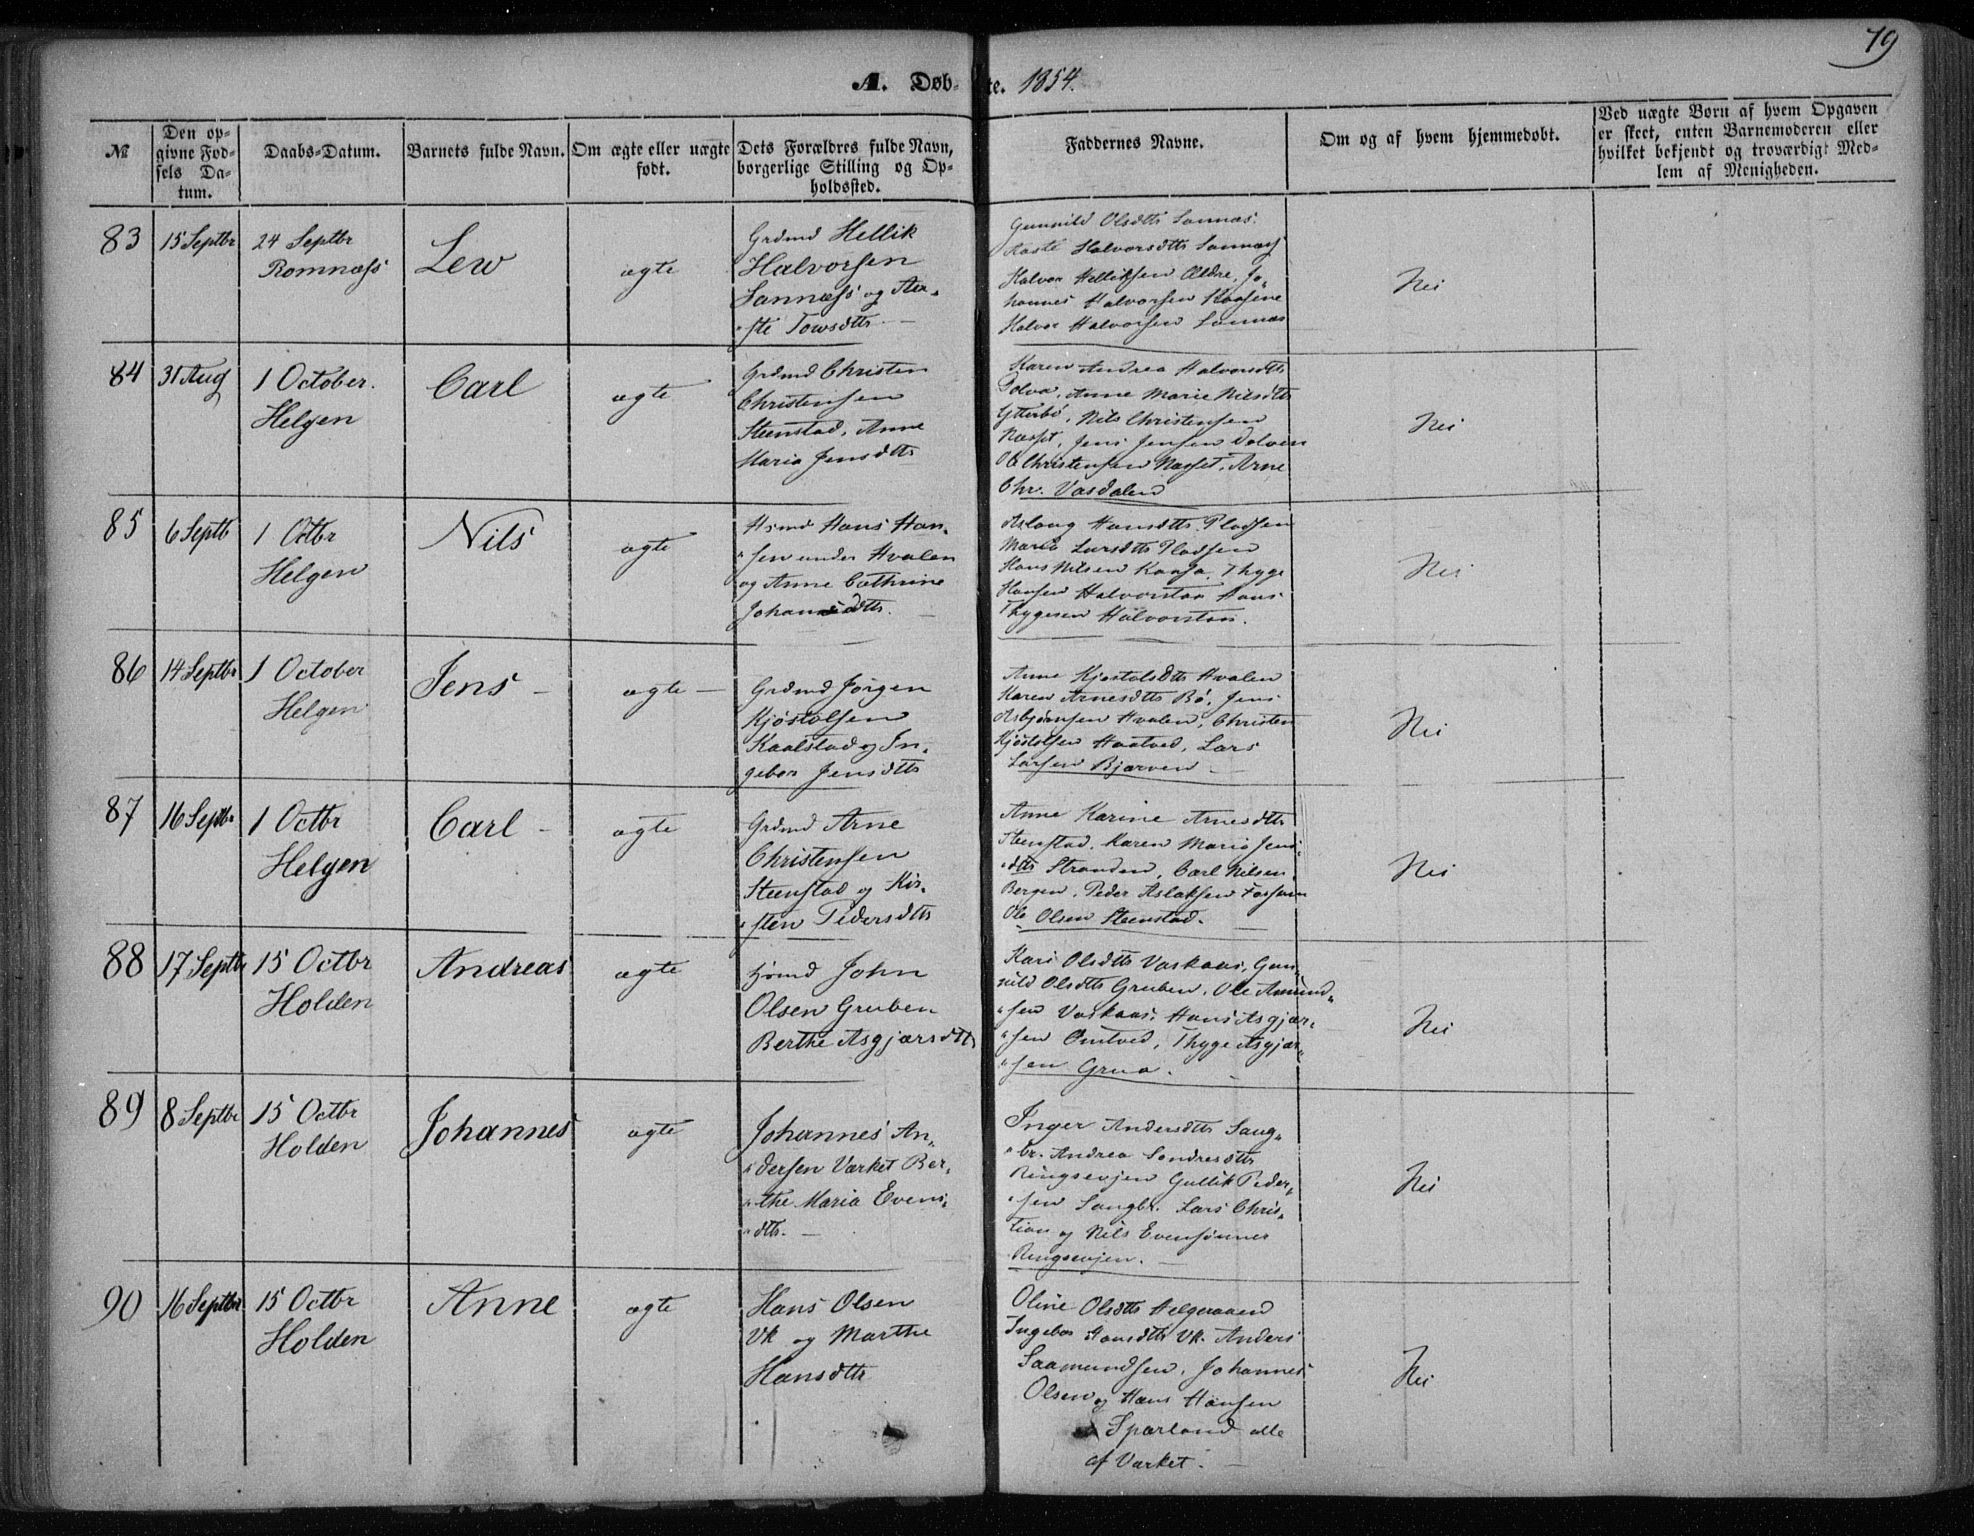 79
A. Døb-te. 1854.
№
Den op-
givne Fød-
sels Da-
tum.
Daabs-Datum.
Barnets fulde Navn.
Om ægte eller uægte
født.
Dets Forældres fulde Navn,
borgerlige Stilling og Op-
holdssted.
Faddernes Navne.
Om og af hvem hjemmedøbt.
Ved uægte Børn af hvem Opgaven
er skeet, enten Barnemoderen eller
hvilket bekjendt og troværdigt Med-
lem af Menigheden.
83
15 Septbr
24 Septbr
Romnæss
Lew
ægte
Grdmd Hellik
Halvorsen
Sannæss og
Towsdtr
Gunnild Olsdtr Sannæs
Halvorsdtr Sannæs
Halvor Helliksen Ældre, Jo-
hannes Halvorsen Kaasene
Halvor Halvorsen Sannæs
Nei
84
31 Aug
1 October.
Helgen
Carl
ægte
Grdmd Christen
Christensen
Steenstad, Anne
Maria Jensdtr
Karen Andrea Halvorsdtr
Anne Marie Nilsdtr
Ytterbö, Nils Christensen
Næsset, Jens Jensen Dolven
Ole Christensen Næsset, Arne
Chr. Vasdalen
Nei
85
6 Septb
1 Octbr
Helgen
Nils
ægte
Hsmd Hans Han-
sen under Hvalen
og Anne Cathrine
Johansdtr.
Aslaug Hansdtr. Pladsen
Maria Larsdtr Pladsen
Hans Nilsen Kaasa, Thyge
Hansen Halvorstan Hans
Thygesen Halvorstan.
Nei
86
14 Septbr
1 October
Helgen
Jens -
ægte -
Grdmd Jörgen
Kjöstolsen
Kaalstad og In-
gebor Jensdtr
Anne Kjostolsdtr Hvalen
Karen Arnesdtr Bö, Jens
Asbjørnsen Hvalen, Christen
Kjöstolsen Haatved, Lars
Larsen Bjærven -
Nei
87
16 Septbr
1 Octbr
Helgen
Carl -
ægte
Grdmd Arne
Christensen
Steenstad og Kir-
sten Pedersdtr
Anne Karine Arnesdtr
Steenstad, Karen Maria Jens-
dtr Stranden, Carl Nilsen
Bergen, Peder Aslaksen Fossum
Ole Olsen Steenstad.
Nei
88
17 Septbr
15 Octbr
Holden
Andreas
ægte
John
Olsen Gruben
Berthe Asgjærsdtr
Kari Olsdtr Vaskaas, Gun-
nild Olsdtr Gruben, Ole Amund-
sen Vaskaas, Hans Asgjær-
sen Omtved, Thyge Asgjær-
sen Grua.
Nei
89
8 Septbr
15 Octbr
Holden
Johannes
ægte
Johannes An-
dersen Værket Ber-
the Maria Evens-
dtr. -
Inger Andersdtr Saug-
br. Andrea Sondresdtr
Ringsevjen Gullik Peder-
sen Saugbr. Lars Chris-
tian og Nils Evensönner
Ringsevjen. -
Nei
90
16 Septbr
15 Octbr
Holden
Anne
ægte
Hans Olsen
Vk og Marthe
Hansdtr
Oline Olsdtr Helgeraaen
Ingebor Hansdtr Vk. Anders
Saamundsen, Johannes
Olsen og Hans Hansen
Sparland alle
af Værket. -
Nei